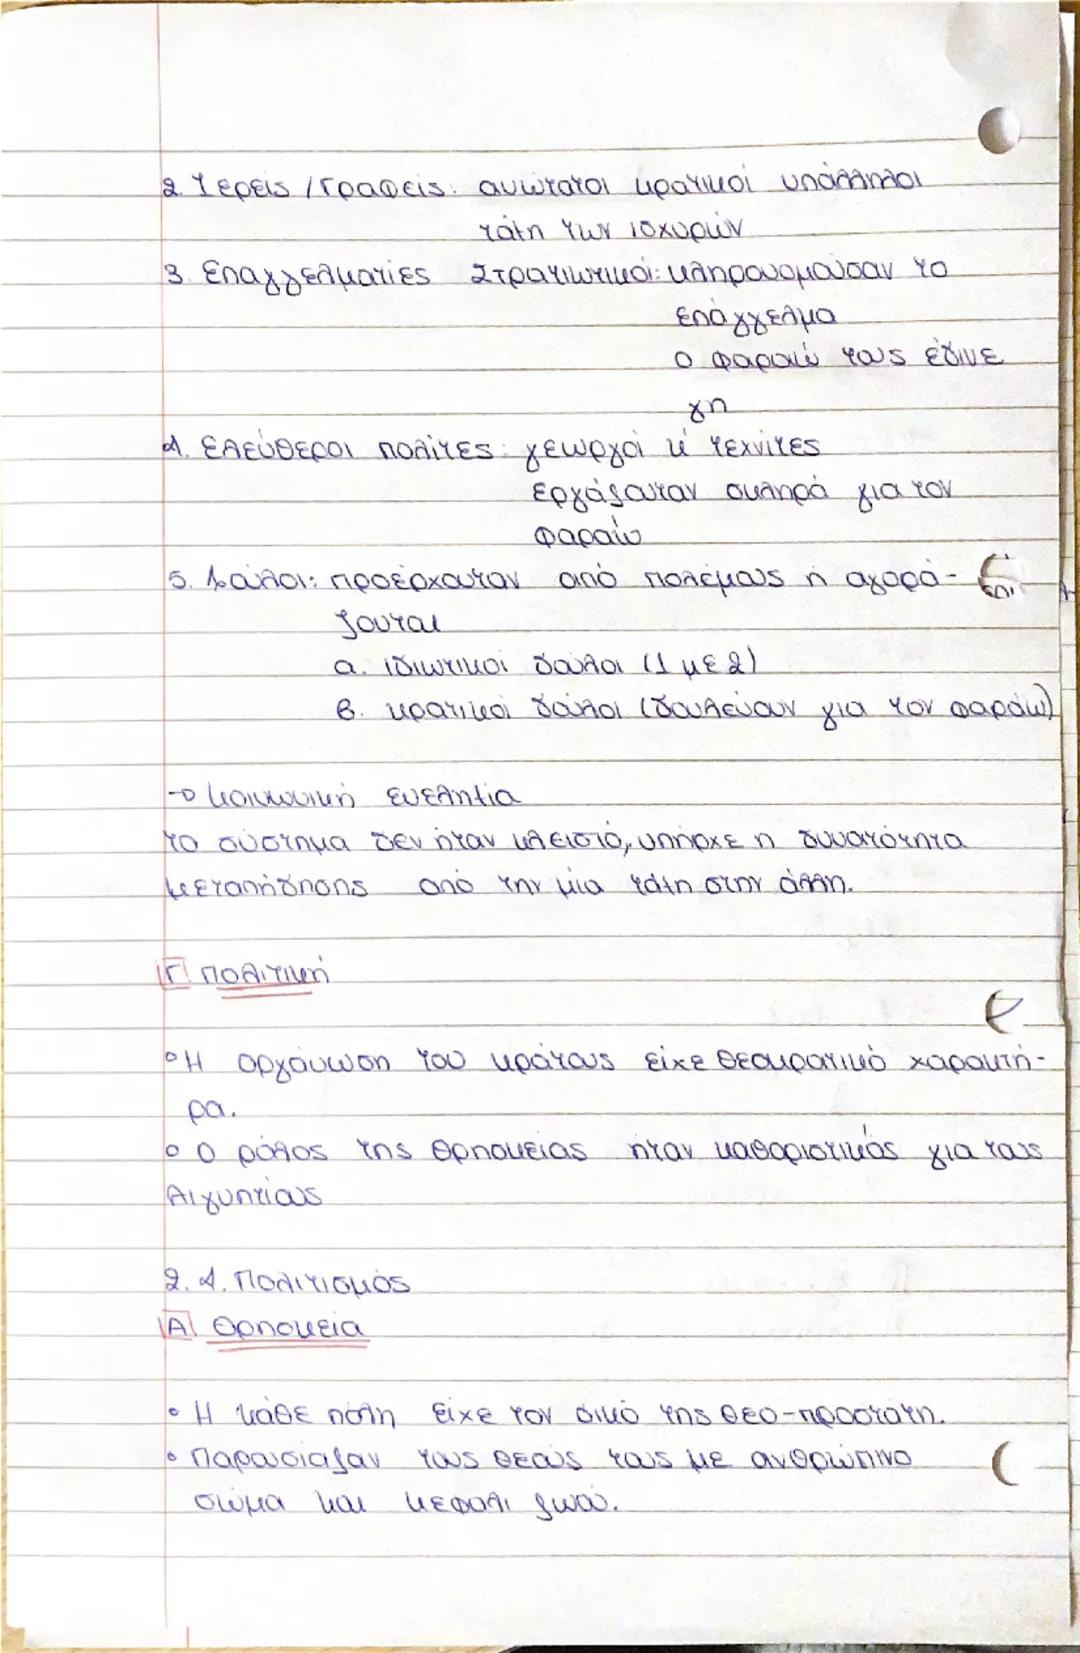 2. Ιερείς / Γραφείς: ανώτατοι κρατικοί υπάλληλοι
τάξη των ισχυρών
3. Επαγγελματίες Στρατιωτικοί: κληρονομούσαν το
επάγγελμα
ο φαραώ τους έδινε
γη
4. Ελεύθεροι πολίτες: γεωργοί κ' τεχνίτες
εργάζονταν σκληρά για τον
φαραώ
5. Δούλοι: προέρχονταν από πολέμους ή αγορά-
ζονται
α. ιδιωτικοί δούλοι (1 με 2)
β. κρατικοί δούλοι (δουλεύουν για τον φαραώ)
→ Κοινωνική ευελιξία
το σύστημα δεν ήταν κλειστό, υπήρχε η δυνατότητα
μεταπήδησης από την μία τάξη στην άλλη.
Γ. Πολιτική
• Η οργάνωση του κράτους είχε θεοκρατικό χαρακτή-
ρα.
• Ο ρόλος της θρησκείας ήταν καθοριστικός για τους
Αιγυπτίους
2.4. Πολιτισμός
Α Θρησκεία
• Η κάθε πόλη είχε τον δικό της θεο-προστάτη.
• Παρουσίαζαν τους θεούς τους με ανθρώπινο
σώμα και κεφάλι ζώου.